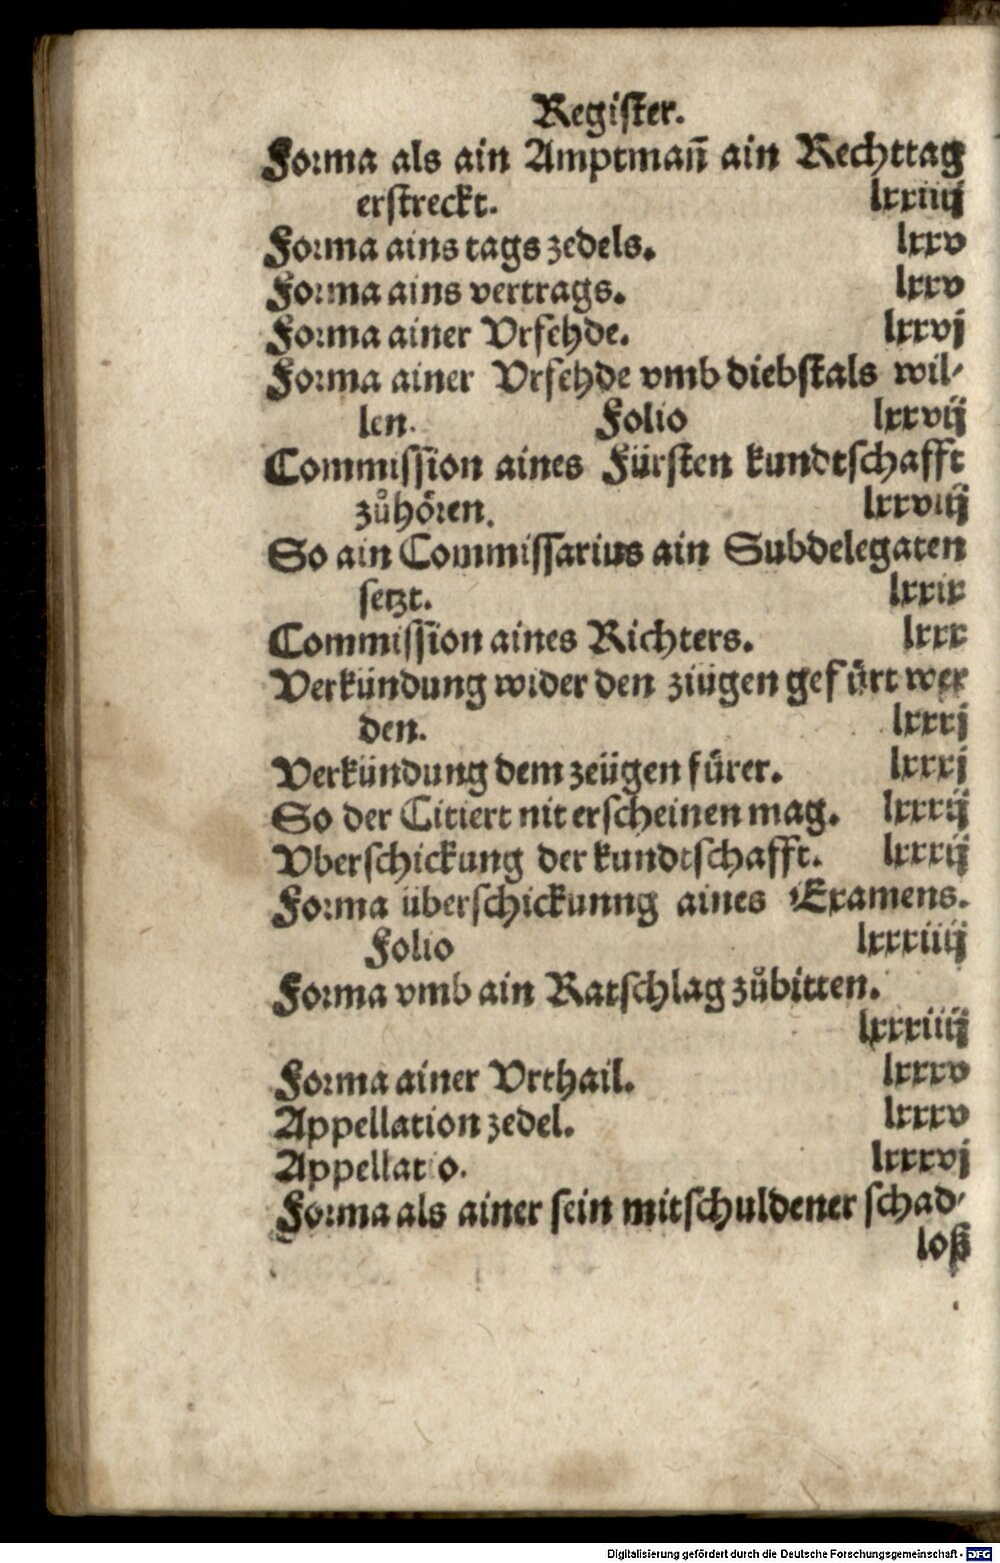 Register.
Forma als ain Amptman̄ ain Rechttag
erstreckt. lxxiiij
Forma ains tags zedels. lxxv
Forma ains vertrags. lxxv
Forma ainer Vrfehde. lxxvj
Forma ainer Vrfehde vmb diebstals wil⸗
len. Folio lxxvij
Commission aines Fürsten kundtschafft
zůhören. lxxviij
So ain Commissarius ain Subdelegaten
setzt. lxxix
Commission aines Richters. lxxx
Verkündung wider den ziügen gefürt wer
den. lxxxj
Verkündung dem zeügen fürer. lxxxj
So der Citiert nit erscheinen mag. lxxxij
Vberschickung der kundtschafft. lxxxij
Forma überschickunng aines Examens.
Folio lxxxiiij
Forma vmb ain Ratschlag zůbitten.
lxxxiiij
Forma ainer Vrthail. lxxxv
Appellation zedel. lxxxv
Appellatio. lxxxvj
Forma als ainer sein mitschuldener schad⸗
loß
Digitalisierung gefördert durch die Deutsche Forschungsgemeinschaft - DFG